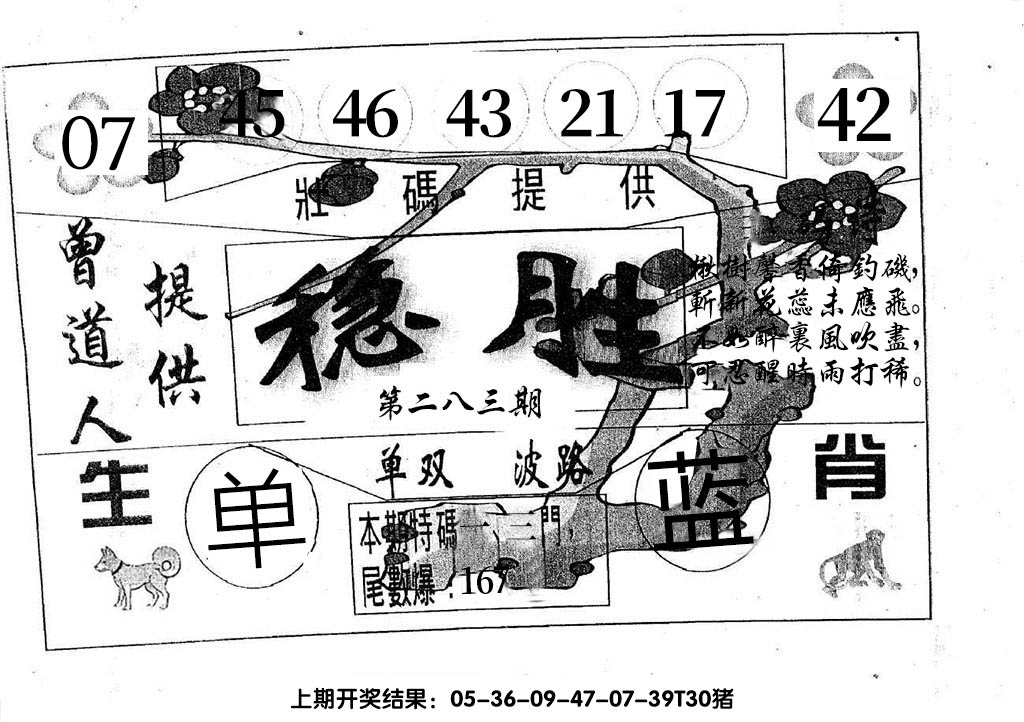 07 45 46 43 21 17 42
壯碼提供
特
曾道人
提供
楸樹馨香倚釣磯，
斬新花蕊未應飛。
不如醉裏風吹盡，
可忍醒時雨打稀。
稳胜
第二八三期
单双 波路
生 肖
单 蓝
本期特碼一、三門，
尾數爆：167
上期开奖结果：05-36-09-47-07-39T30猪